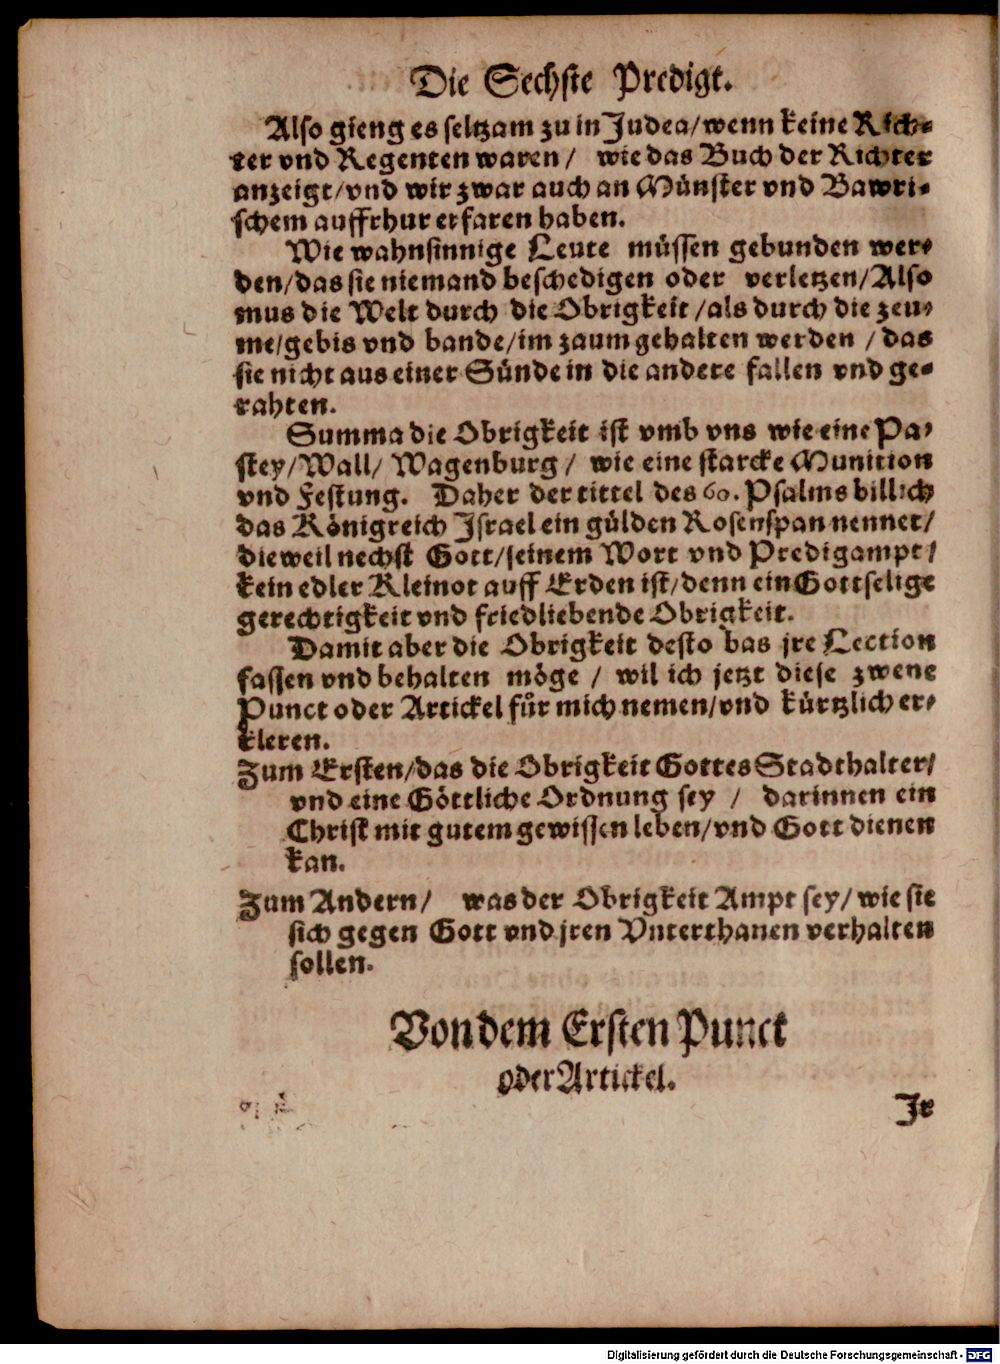 Die Sechste Predigt.
Also gieng es seltzam zu in Judea/wenn keine Rich-
ter vnd Regenten waren / wie das Buch der Richter
anzeigt/vnd wir zwar auch an Münster vnd Bawri-
schem auffrhur erfaren haben.
Wie wahnsinnige Leute müssen gebunden wer-
den/das sie niemand beschedigen oder verletzen/Also
mus die Welt durch die Obrigkeit/als durch die zeu-
me/gebis vnd bande/im zaum gehalten werden / das
sie nicht aus einer Sünde in die andere fallen vnd ge-
rahten.
Summa die Obrigkeit ist vmb vns wie eine Pa-
stey/Wall/ Wagenburg / wie eine starcke Munition
vnd Festung. Daher der tittel des 60. Psalms billich
das Königreich Israel ein gülden Rosenspan nennet/
dieweil nechst Gott/seinem Wort vnd Predigampt/
kein edler Kleinot auff Erden ist/denn ein Gottselige
gerechtigkeit vnd friedliebende Obrigkeit.
Damit aber die Obrigkeit desto bas jre Lection
fassen vnd behalten möge / wil ich jetzt diese zwene
Punct oder Artickel für mich nemen/vnd kürtzlich er-
kleren.
Zum Ersten/das die Obrigkeit Gottes Stadthalter/
vnd eine Göttliche Ordnung sey / darinnen ein
Christ mit gutem gewissen leben/vnd Gott dienen
kan.
Zum Andern/ was der Obrigkeit Ampt sey/wie sie
sich gegen Gott vnd jren Vnterthanen verhalten
sollen.
Von dem Ersten Punct
oder Artickel.
Ir
Digitalisierung gefördert durch die Deutsche Forschungsgemeinschaft - DFG